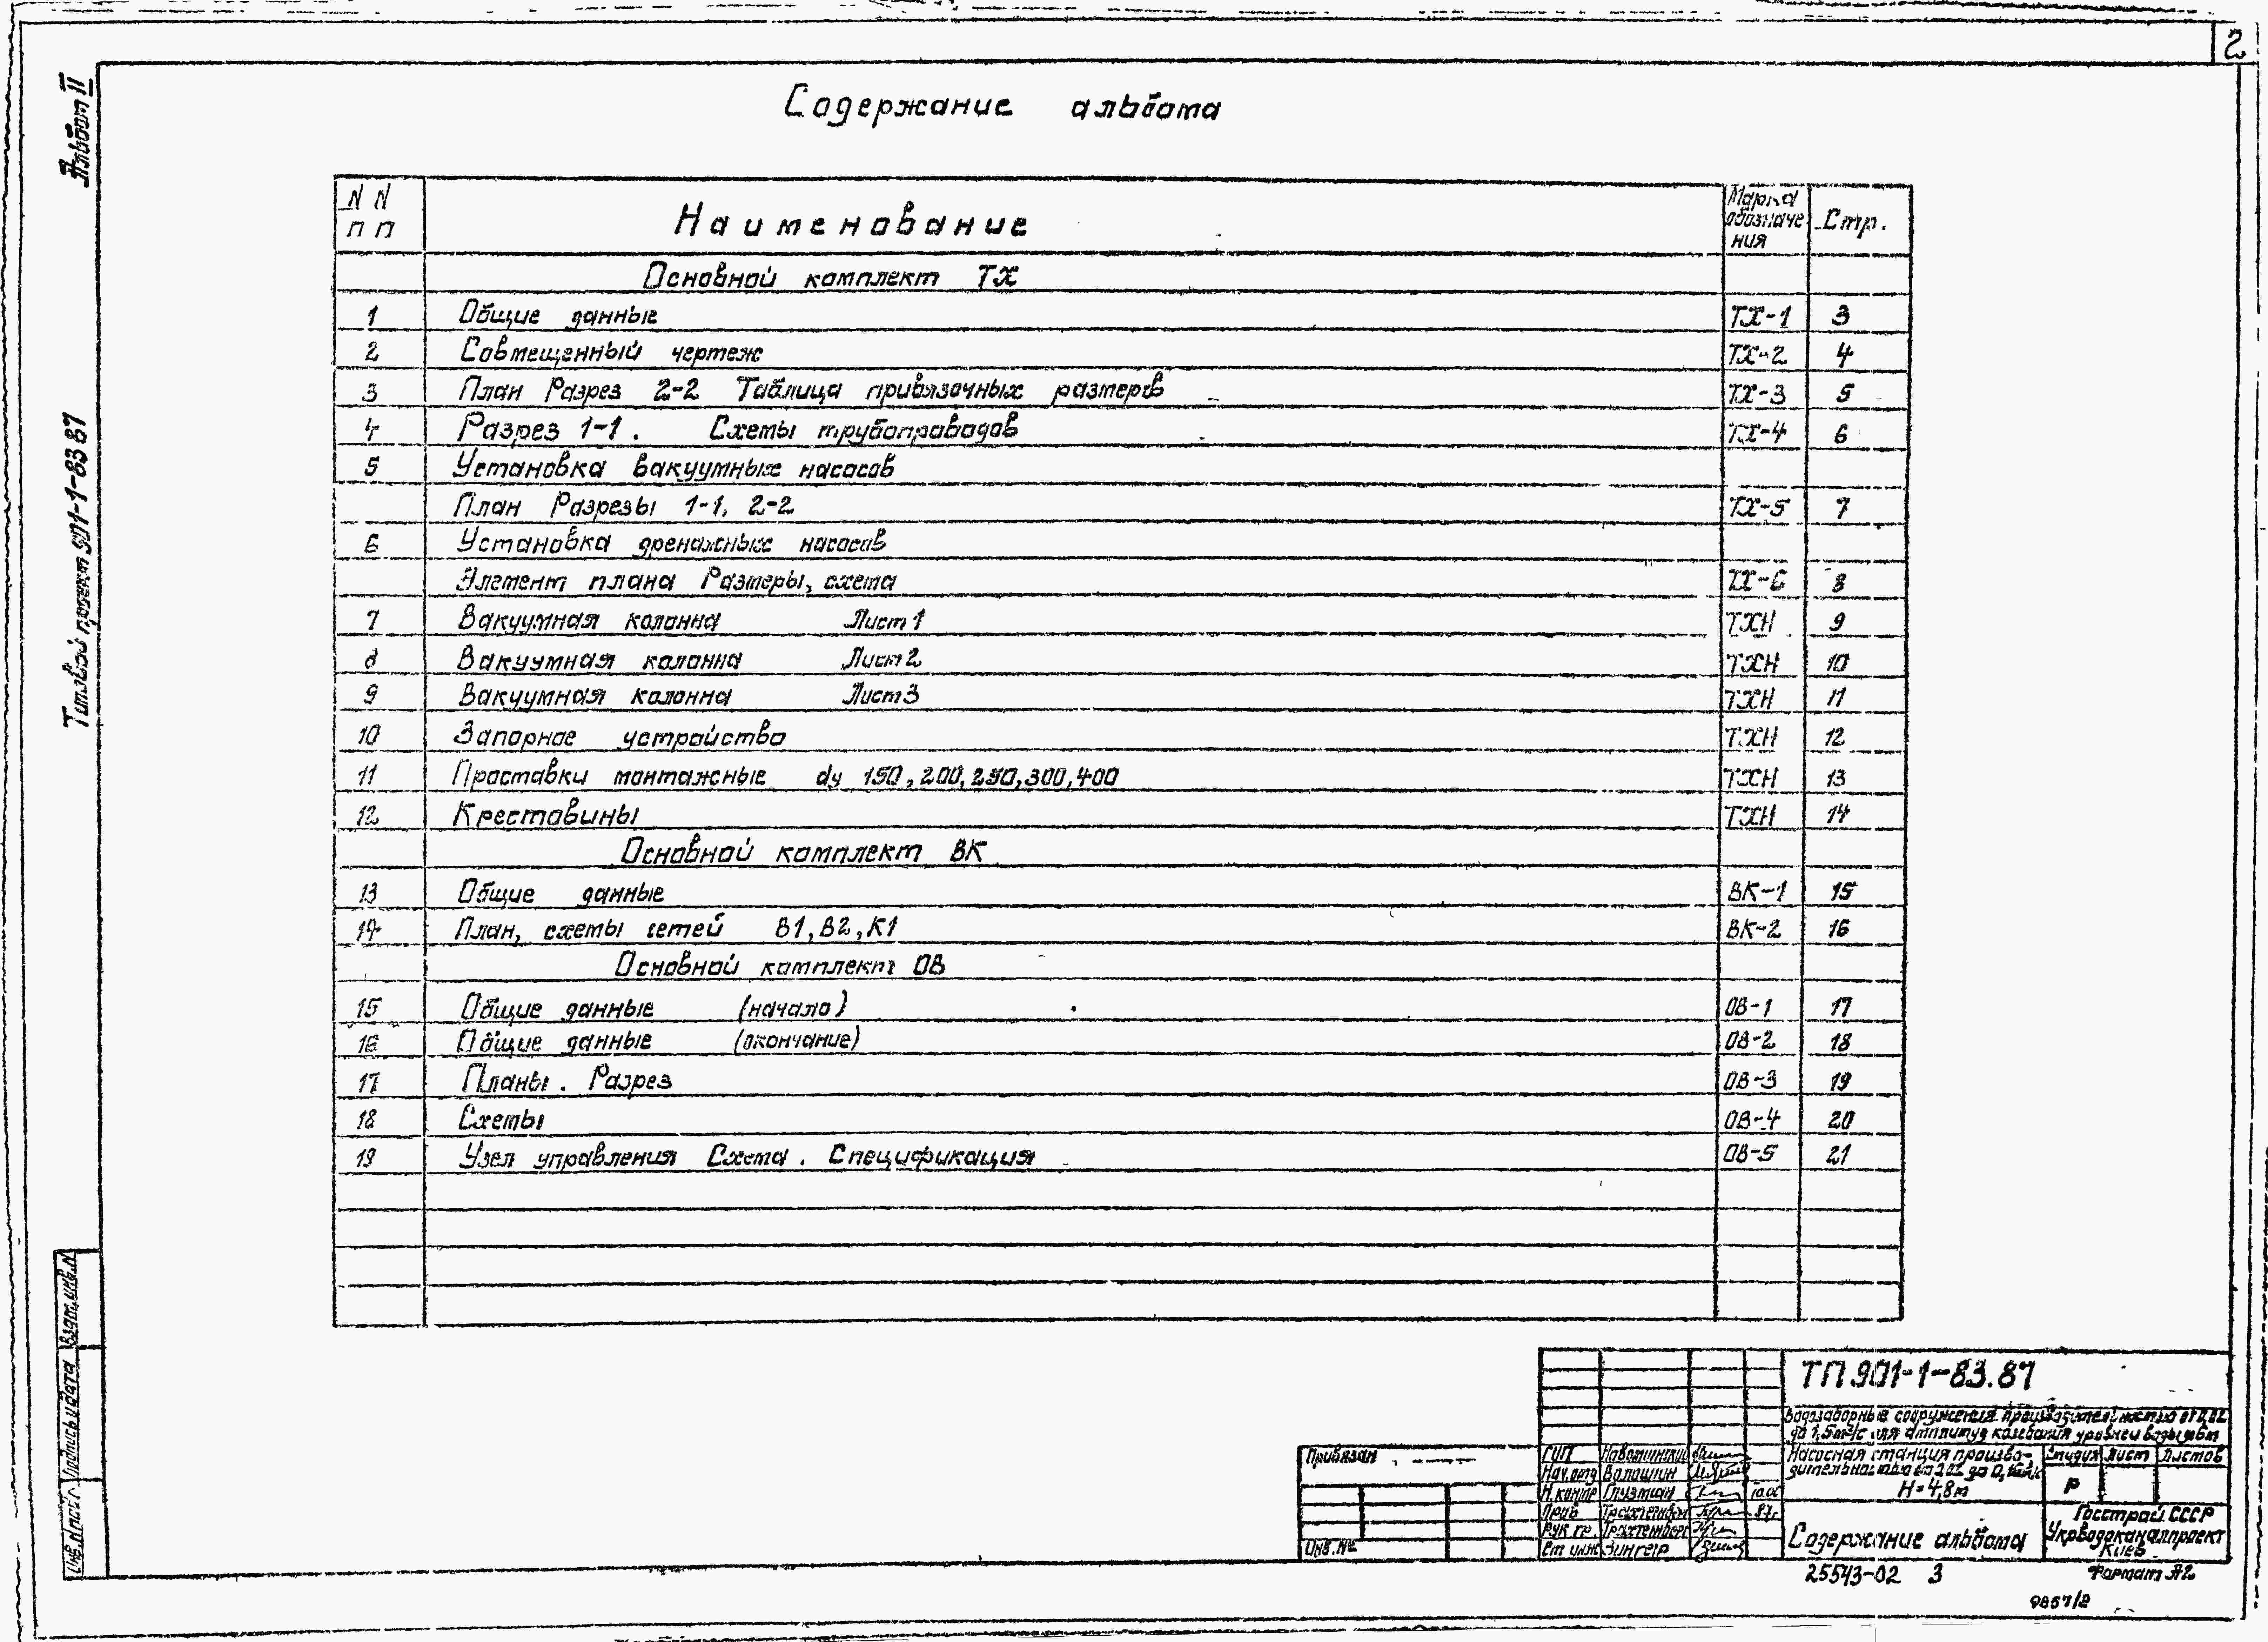 2
Альбом II
Типовой проект 901-1-83 87
Содержание альбома
N N
п п
Наименование
Марка
обозначе
ния
Стр.
Основной комплект ТХ
1 Общие данные ТХ-1 3
2 Совмещенный чертеж ТХ-2 4
3 План Разрез 2-2 Таблица привязочных размеров ТХ-3 5
4 Разрез 1-1. Схемы трубопроводов ТХ-4 6
5 Установка вакуумных насосов
План Разрезы 1-1, 2-2 ТХ-5 7
6 Установка дренажных насосов
Элемент плана Размеры, схема ТХ-6 8
7 Вакуумная колонна Лист 1 ТХН 9
8 Вакуумная колонна Лист 2 ТХН 10
9 Вакуумная колонна Лист 3 ТХН 11
10 Запорное устройство ТХН 12
11 Проставки монтажные dу 150, 200, 250, 300, 400 ТХН 13
12 Крестовины ТХН 14
Основной комплект ВК
13 Общие данные ВК-1 15
14 План, схемы сетей В1, В2, К1 ВК-2 16
Основной комплект ОВ
15 Общие данные (начало) ОВ-1 17
16 Общие данные (окончание) ОВ-2 18
17 Планы. Разрез ОВ-3 19
18 Схемы ОВ-4 20
19 Узел управления Схема. Спецификация ОВ-5 21
Взам. инв. N
Подпись и дата
Инв. N подл
Привязан
Инв. №
ГИП
Нач. отд Волошин
Н. контр Глузман
Пров Трахтенберг 87г
Рук гр. Трахтенберг
Ст инж Зингер
ТП 901-1-83.87
Водозаборные сооружения производительностью от 0,02
до 1,5 м³/с для амплитуд колебания уровней воды 6м
Насосная станция произво-
дительностью от 0,02 до
Н=4,8м
Стадия Лист Листов
Р
Содержание альбома
Госстрой СССР
Укрводоканалпроект
Киев
25543-02 3
Формат А2
9857/2